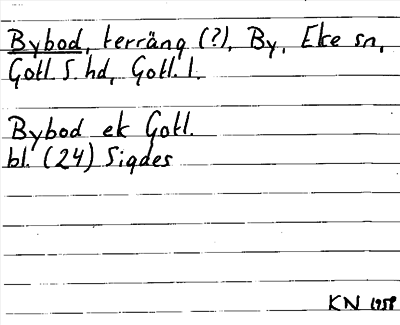 Bybod, terräng (?), By, Eke sn,
Gotl. S. hd, Gotl. l.
Bybod ek Gotl.
bl. (24) Sigdes
KN 1958